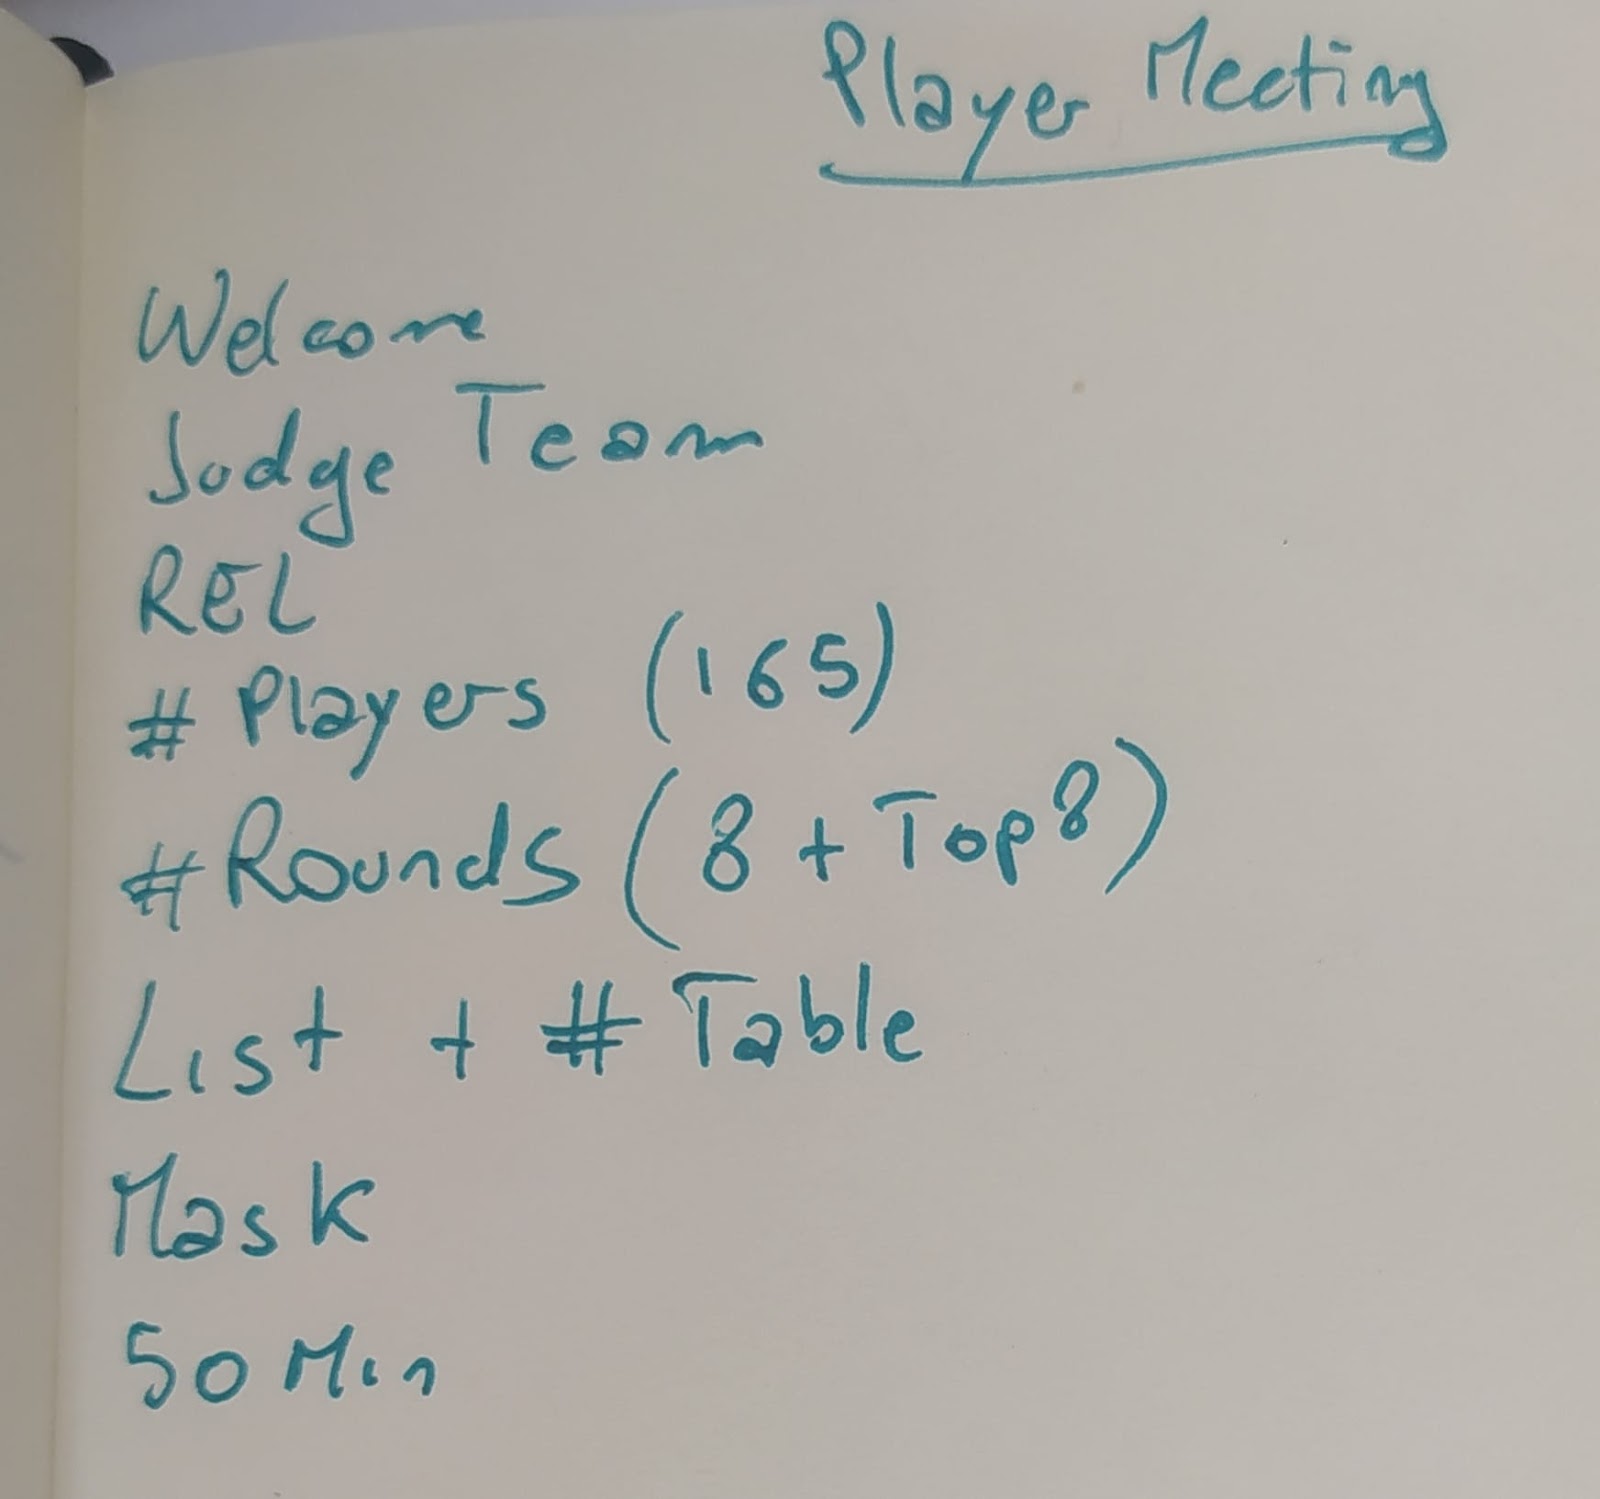 Player Meeting
Welcome
Judge Team
REL
# Players (165)
# Rounds (8 + Top 8)
List + # Table
Mask
50 Min